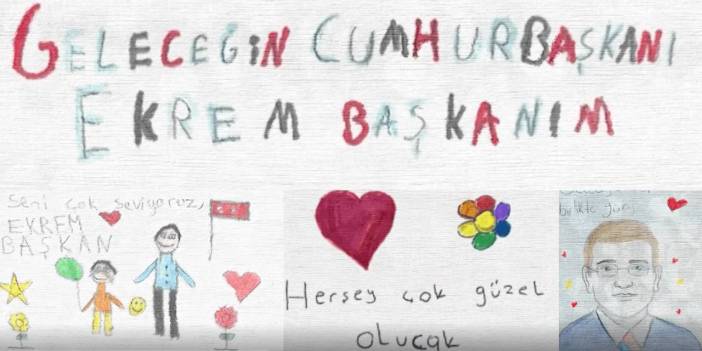 GELECEĞİN CUMHURBAŞKANI
EKREM BAŞKANIM
Seni çok seviyoruz,
EKREM
BAŞKAN
Herşey çok güzel
olucak
birlikte